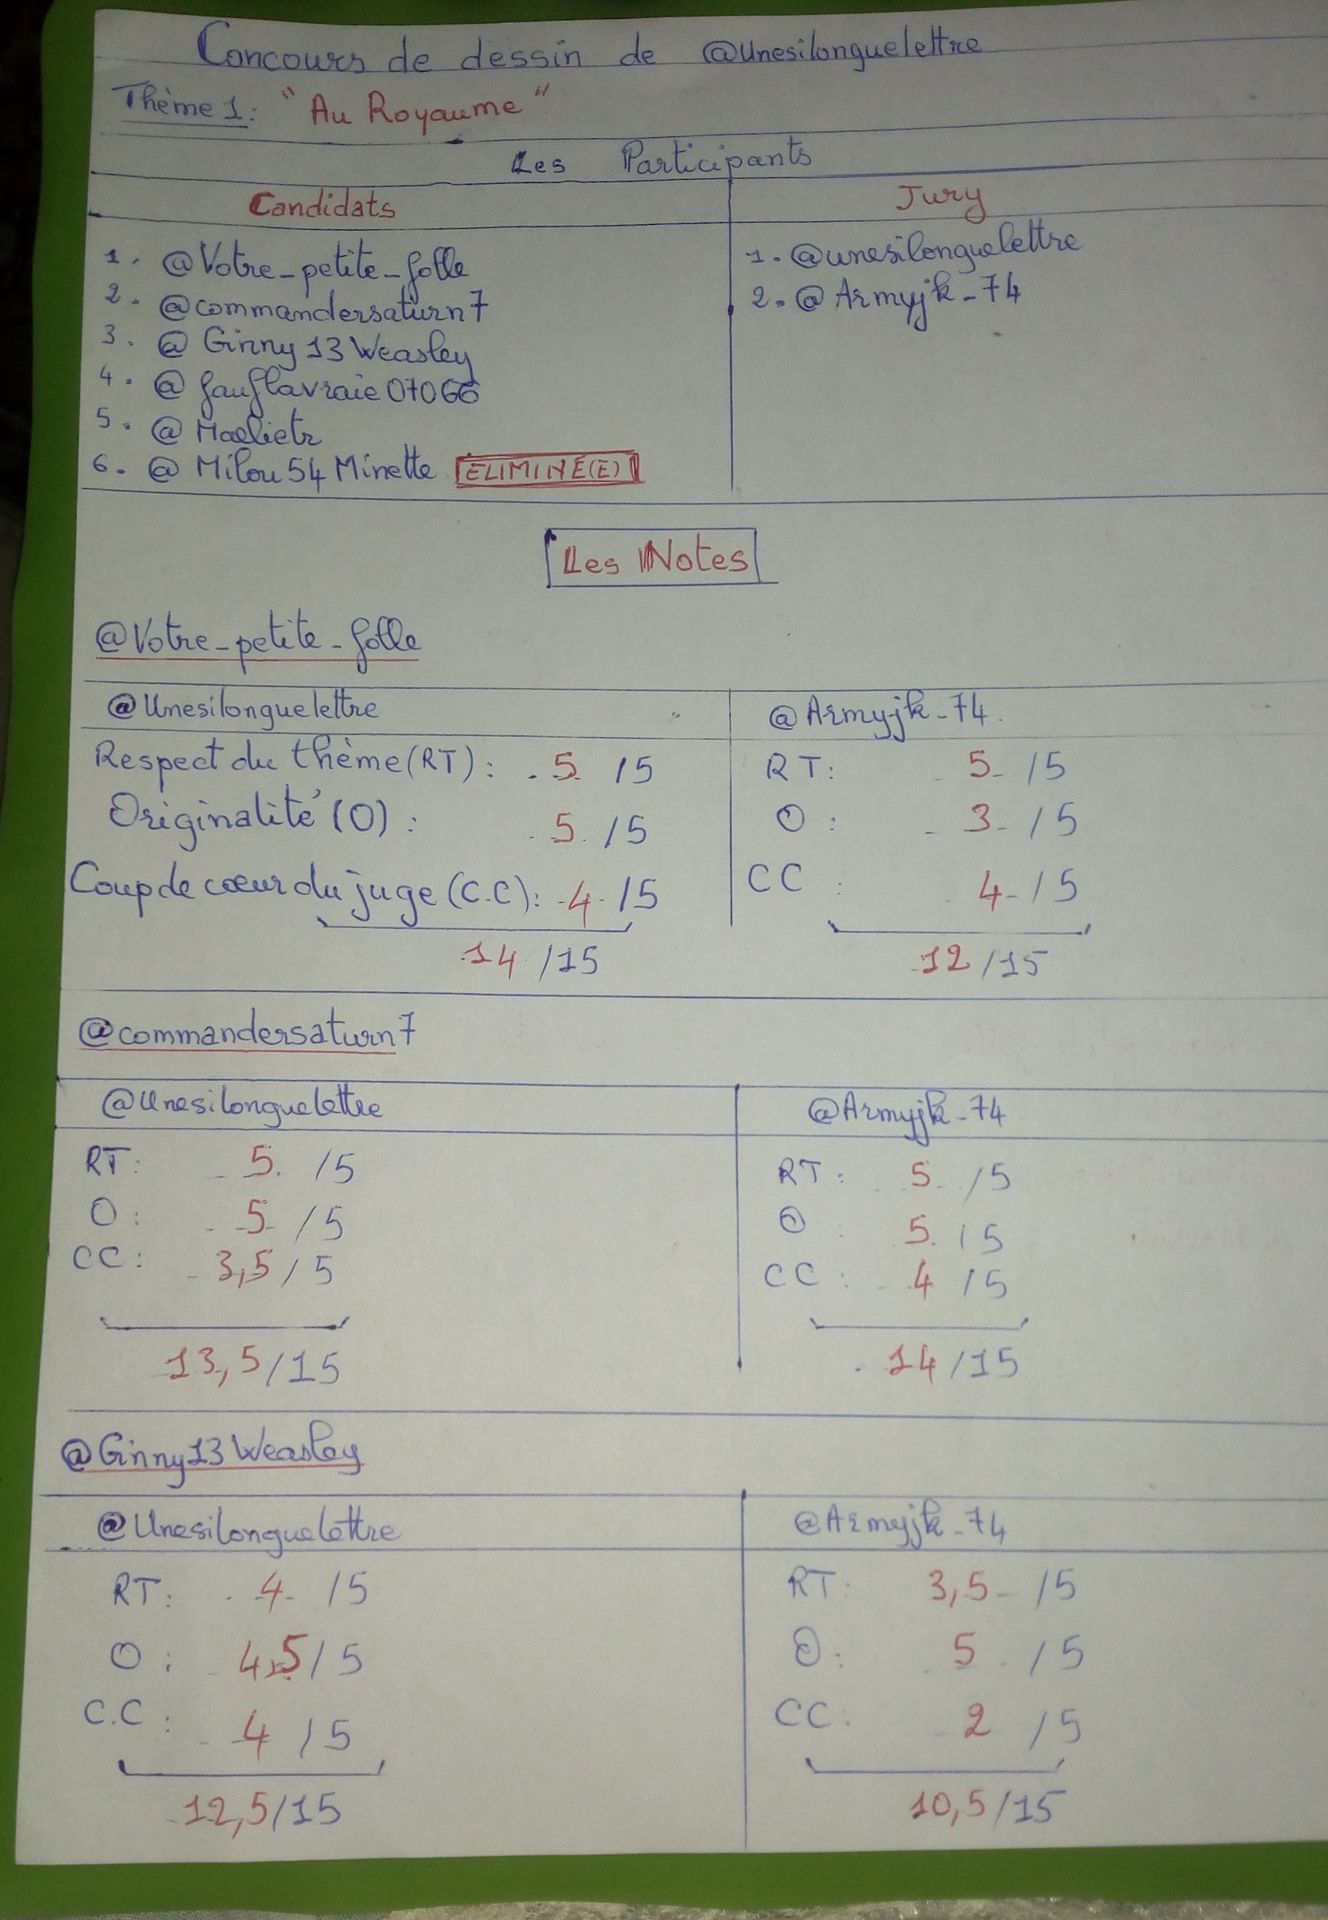 Concours de dessin de @Unesilonguelettre
Thème 1: "Au Royaume"
Les Participants
Candidats
1. @Votre_petite_folle
2. @commandersaturn7
3. @Ginny13Weasley
4. @fauflavraie07066
5. @Maelietz
6. @Milou54Minette ÉLIMINÉ(E)
Jury
1. @unesilonguelettre
2. @Armyjk_74
Les Notes
@Votre_petite_folle
@Unesilonguelettre
Respect du thème (RT) : 5 /5
Originalité (O) : 5 /5
Coup de cœur du juge (C.C) : 4 /5
14 /15
@Armyjk_74
RT : 5 /5
O : 3 /5
CC : 4 /5
12 /15
@commandersaturn7
@Unesilonguelettre
RT : 5 /5
O : 5 /5
CC : 3,5 /5
13,5 /15
@Armyjk_74
RT : 5 /5
O : 5 /5
CC : 4 /5
14 /15
@Ginny13Weasley
@Unesilonguelettre
RT : 4 /5
O : 4,5 /5
C.C : 4 /5
12,5 /15
@Armyjk_74
RT : 3,5 /5
O : 5 /5
CC : 2 /5
10,5 /15